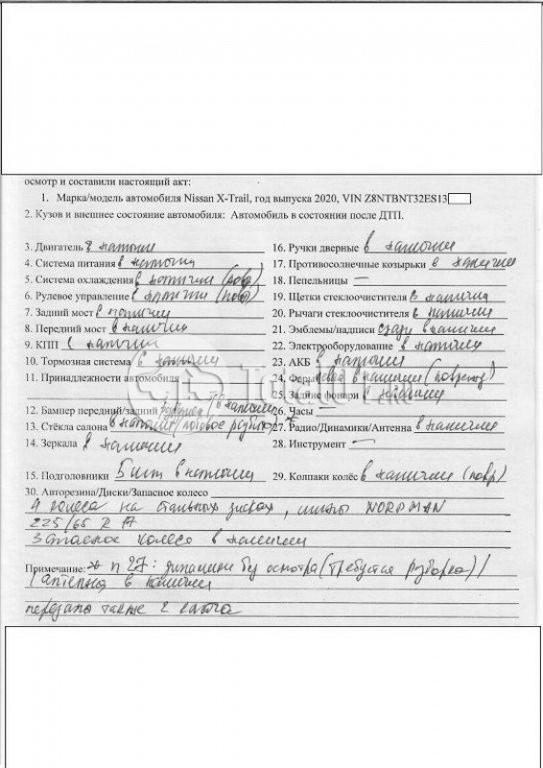 осмотр и составили настоящий акт:
1. Марка/модель автомобиля Nissan X-Trail, год выпуска 2020, VIN Z8NTBNT32ES13
2. Кузов и внешнее состояние автомобиля: Автомобиль в состоянии после ДТП.
3. Двигатель в наличии
16. Ручки дверные в наличии
4. Система питания в наличии
17. Противосолнечные козырьки в наличии
5. Система охлаждения в наличии (повр)
18. Пепельницы —
6. Рулевое управление в наличии (повр)
19. Щетки стеклоочистителя в наличии
7. Задний мост в наличии
20. Рычаги стеклоочистителя в наличии
8. Передний мост в наличии
21. Эмблемы/надписи сзади в наличии
9. КПП в наличии
22. Электрооборудование в наличии
10. Тормозная система в наличии
23. АКБ в наличии
11. Принадлежности автомобиля
24. Фара в наличии
25. Задние фонари в наличии
12. Бампер передний/задний в наличии
26. Часы —
13. Стёкла салона в наличии/лобовое разбито
27. Радио/Динамики/Антенна в наличии
14. Зеркала в наличии
28. Инструмент —
15. Подголовники 5 шт в наличии
29. Колпаки колёс в наличии (повр)
30. Авторезина/Диски/Запасное колесо
4 колеса на стальных дисках, шины NORDMAN
225/65 R 17
Запасное колесо в наличии
Примечание: * п 27: динамики без осмотра (требуется разборка) /
/ антенна в наличии
передано также 2 ключа
Total